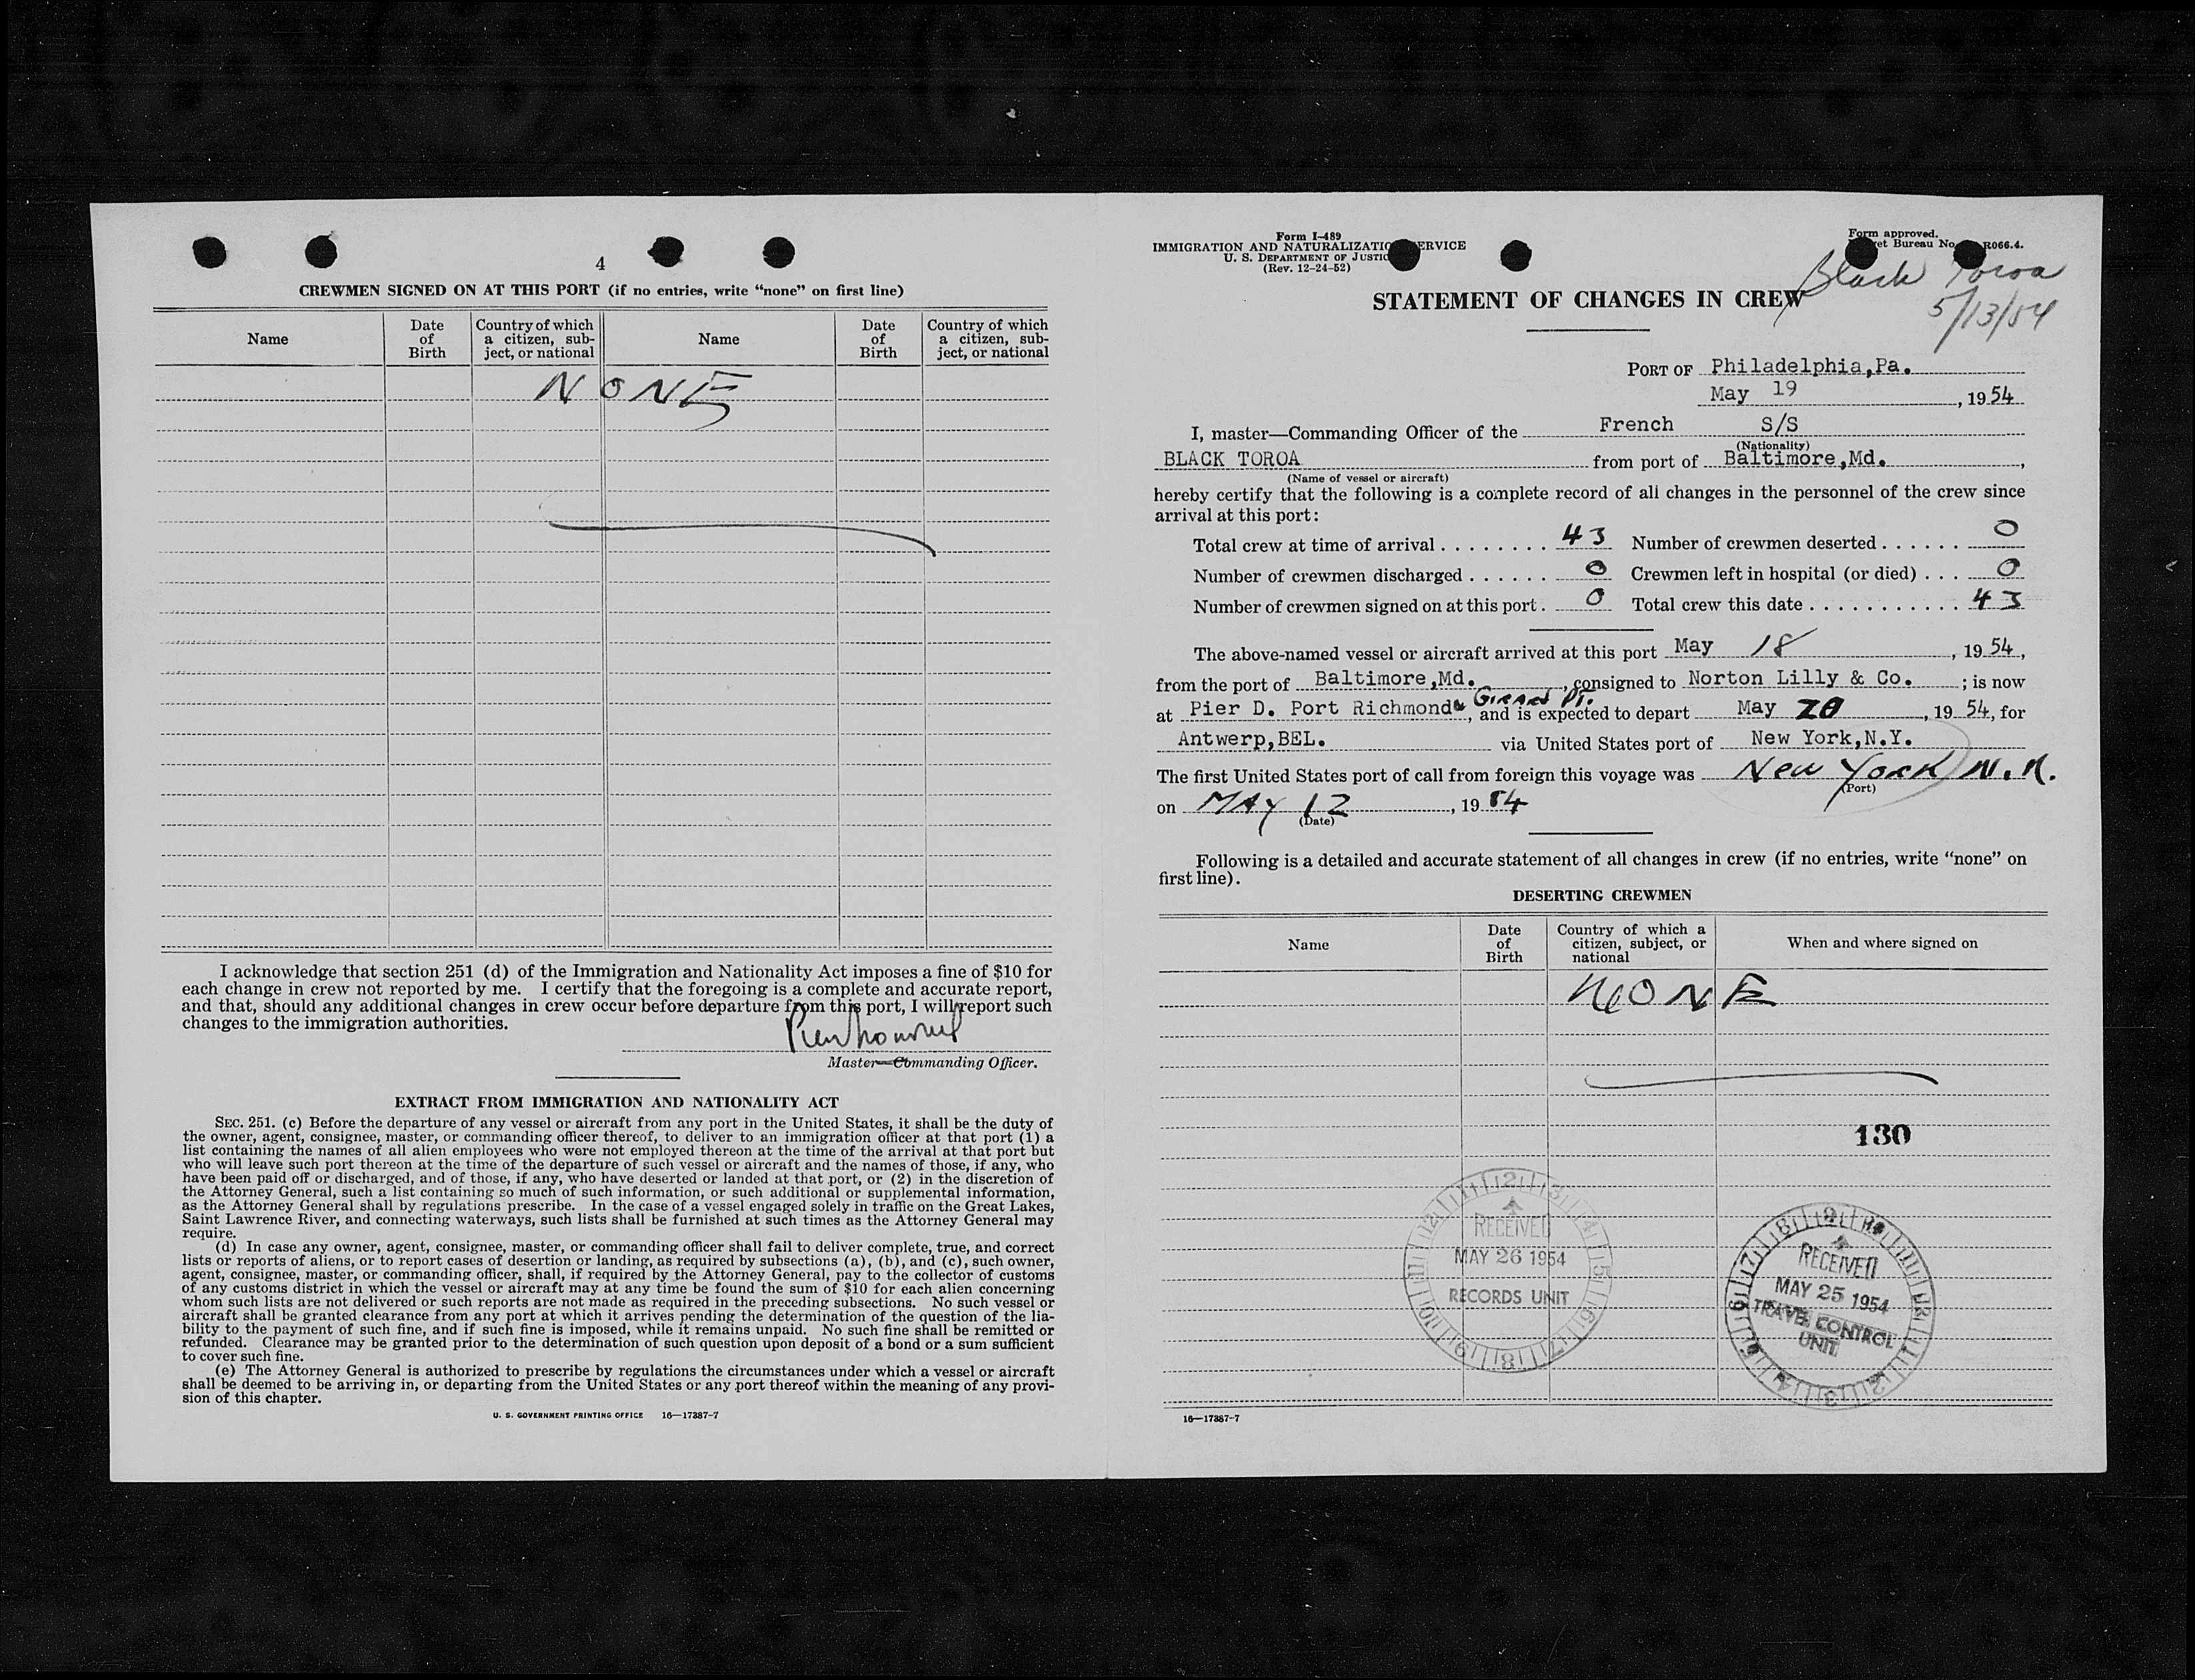 4
CREWMEN SIGNED ON AT THIS PORT (if no entries, write “none” on first line)
Name
Date of Birth
Country of which a citizen, subject, or national
Name
Date of Birth
Country of which a citizen, subject, or national
NONE
I acknowledge that section 251 (d) of the Immigration and Nationality Act imposes a fine of $10 for
each change in crew not reported by me. I certify that the foregoing is a complete and accurate report,
and that, should any additional changes in crew occur before departure from this port, I will report such
changes to the immigration authorities.
Master—Commanding Officer.
EXTRACT FROM IMMIGRATION AND NATIONALITY ACT
SEC. 251. (c) Before the departure of any vessel or aircraft from any port in the United States, it shall be the duty of
the owner, agent, consignee, master, or commanding officer thereof, to deliver to an immigration officer at that port (1) a
list containing the names of all alien employees who were not employed thereon at the time of the arrival at that port but
who will leave such port thereon at the time of the departure of such vessel or aircraft and the names of those, if any, who
have been paid off or discharged, and of those, if any, who have deserted or landed at that port, or (2) in the discretion of
the Attorney General, such a list containing so much of such information, or such additional or supplemental information,
as the Attorney General shall by regulations prescribe. In the case of a vessel engaged solely in traffic on the Great Lakes,
Saint Lawrence River, and connecting waterways, such lists shall be furnished at such times as the Attorney General may
require.
(d) In case any owner, agent, consignee, master, or commanding officer shall fail to deliver complete, true, and correct
lists or reports of aliens, or to report cases of desertion or landing, as required by subsections (a), (b), and (c), such owner,
agent, consignee, master, or commanding officer, shall, if required by the Attorney General, pay to the collector of customs
of any customs district in which the vessel or aircraft may at any time be found the sum of $10 for each alien concerning
whom such lists are not delivered or such reports are not made as required in the preceding subsections. No such vessel or
aircraft shall be granted clearance from any port at which it arrives pending the determination of the question of the lia-
bility to the payment of such fine, and if such fine is imposed, while it remains unpaid. No such fine shall be remitted or
refunded. Clearance may be granted prior to the determination of such question upon deposit of a bond or a sum sufficient
to cover such fine.
(e) The Attorney General is authorized to prescribe by regulations the circumstances under which a vessel or aircraft
shall be deemed to be arriving in, or departing from the United States or any port thereof within the meaning of any provi-
sion of this chapter.
U. S. GOVERNMENT PRINTING OFFICE 16—17387-7
Form I-489
IMMIGRATION AND NATURALIZATIO ERVICE
U. S. DEPARTMENT OF JUSTIC
(Rev. 12-24-52)
Form approved.
et Bureau No. R066.4.
Black Toroa
5/13/54
STATEMENT OF CHANGES IN CREW
PORT OF Philadelphia,Pa.
May 19, 1954
I, master—Commanding Officer of the French S/S
(Nationality)
BLACK TOROA from port of Baltimore,Md.,
(Name of vessel or aircraft)
hereby certify that the following is a complete record of all changes in the personnel of the crew since
arrival at this port:
Total crew at time of arrival 43 Number of crewmen deserted 0
Number of crewmen discharged 0 Crewmen left in hospital (or died) 0
Number of crewmen signed on at this port 0 Total crew this date 43
The above-named vessel or aircraft arrived at this port May 18, 1954,
from the port of Baltimore,Md., consigned to Norton Lilly & Co.; is now
at Pier D. Port Richmond & GIRARD PT., and is expected to depart May 20, 1954, for
Antwerp,BEL. via United States port of New York,N.Y.
The first United States port of call from foreign this voyage was New York N.Y.
(Port)
on MAY 12, 1954
(Date)
Following is a detailed and accurate statement of all changes in crew (if no entries, write “none” on
first line).
DESERTING CREWMEN
Name
Date of Birth
Country of which a citizen, subject, or national
When and where signed on
NONE
130
RECEIVED
MAY 26 1954
RECORDS UNIT
RECEIVED
MAY 25 1954
TRAVEL CONTROL
UNIT
16—17387-7